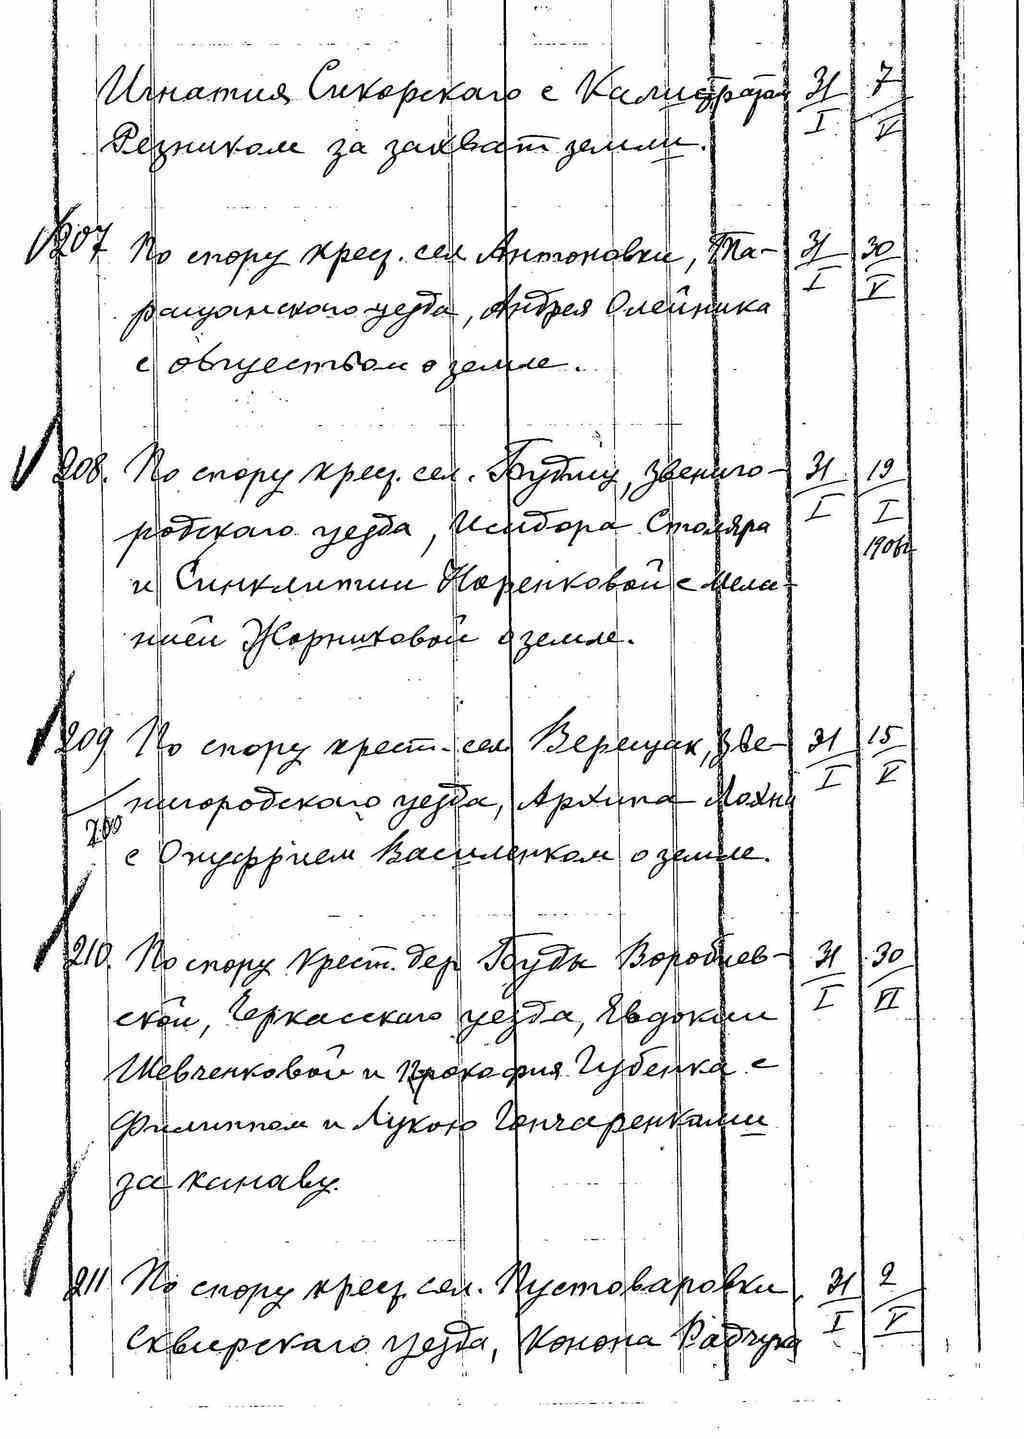 Игнатия Сикорскаго с Калистратом 31/I 7/V
Резником за захват земли.
207 По спору крец. сел Антоновки, Та- 31/I 30/V
ращанскаго уезда, Андрея Олейника
с обществом о земле.
208. По спору крец. сел. Будищ, Звениго- 31/I 19/I
родскаго уезда, Исидора Столяра 1906г
и Синклитии Коренковой с Мела-
нией Жорниковой о земле.
209 По спору крест. сел Верещак, Зве- 31/I 15/V
нигородскаго уезда, Архипа Лохни
200
с Онуфрием Василенком о земле.
210. По спору крест. дер Буды Воробиев- 31/I 30/VI
ской, Черкасскаго уезда, Евдокии
Шевченковой и Прокофия Губенка с
Филиппом и Лукою Гончаренками
за канаву.
211 По спору крец. сел. Пустоваровки, 31/I 2/V
Сквирскаго уезда, Конона Радчука